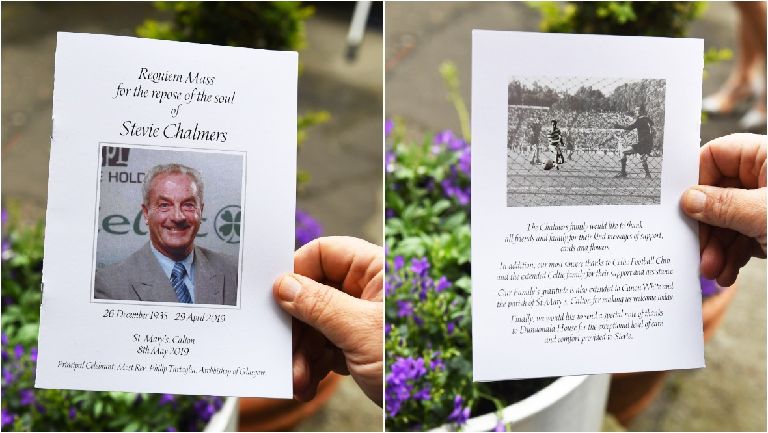 Requiem Mass
for the repose of the soul
of
Stevie Chalmers
HOLD
eltic
26 December 1935 29 April 2019
St Mary's, Calton
8th May 2019
Principal Celebrant: Most Rev. Philip Tartaglia, Archbishop of Glasgow
The Chalmers family would like to thank
all friends and family for their kind messages of support,
cards and flowers.
In addition, our most sincere thanks to Celtic Football Club
and the extended Celtic family for their support and assistance
Our Family's gratitude is also extended to Canon White and
the parish of St Mary's, Calton, for making us welcome today.
Finally, we would like to send a special note of thanks
to House for the exceptional level of care
and comfort provided to Stevie.